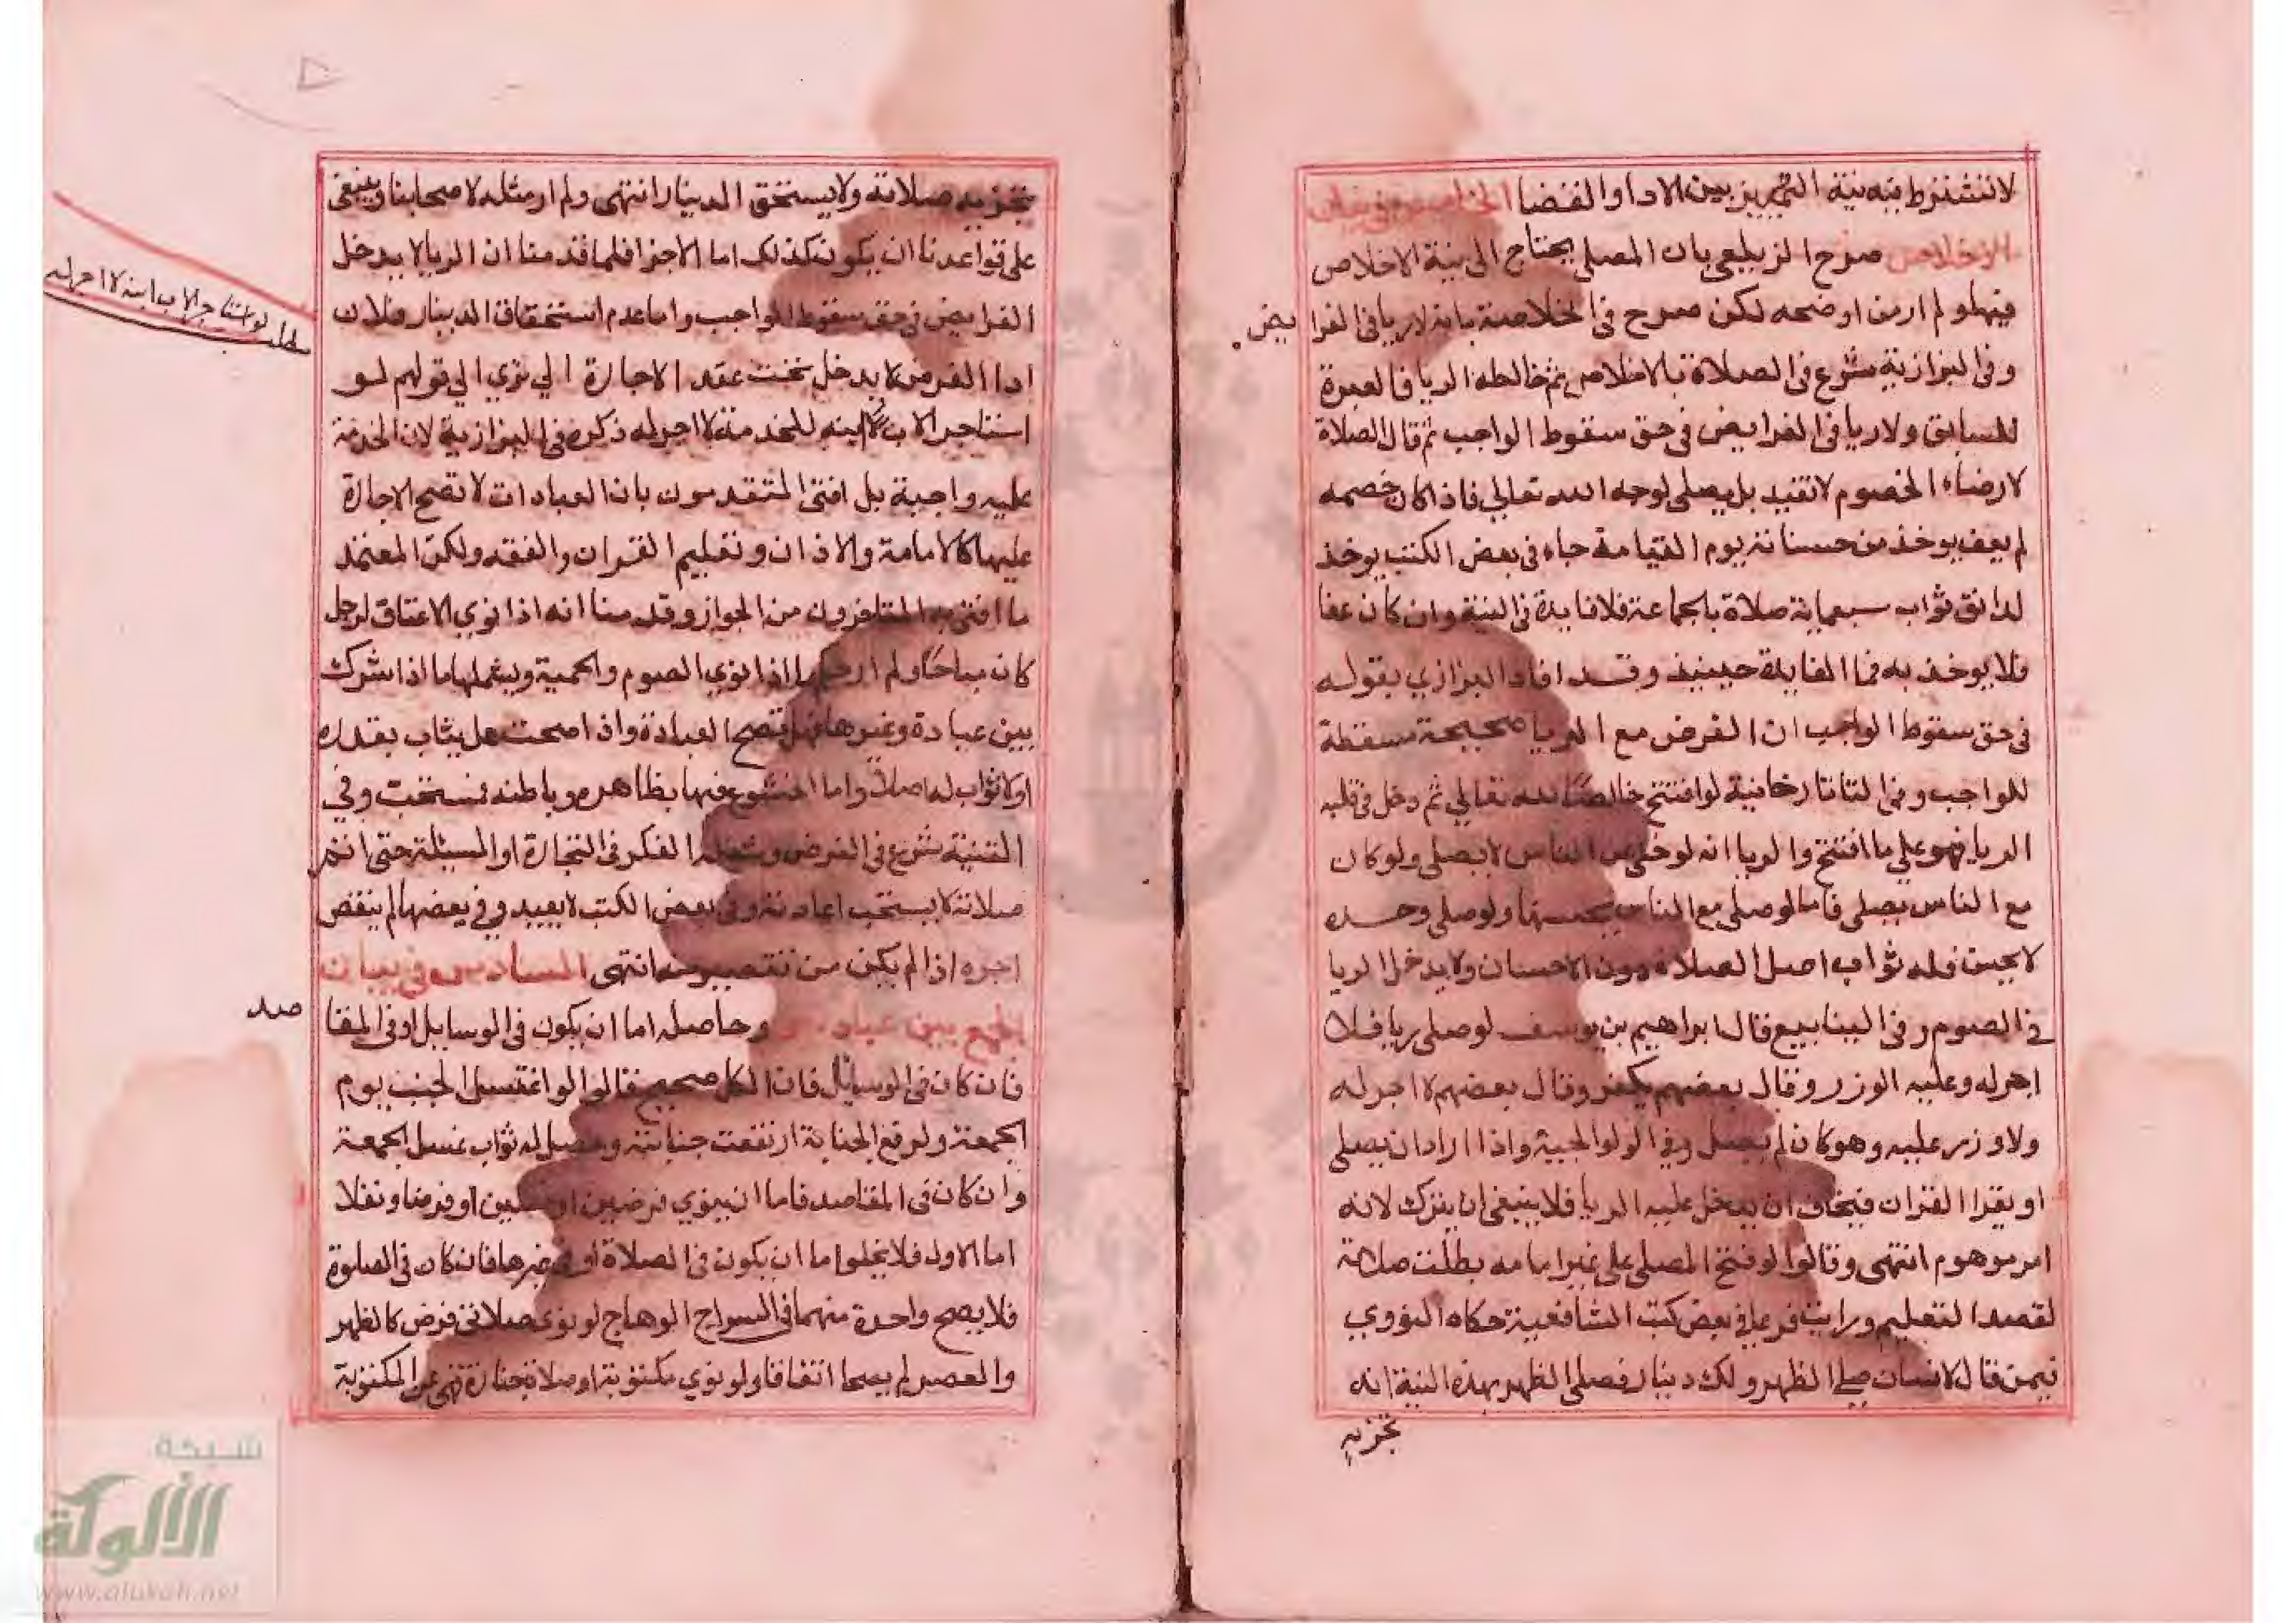 لا تشترط فيه نية التمييز بين الادا والقضا الخامس في بيان
الاخلاص صرح الزيلعي بان المصلي يحتاج الى نية الاخلاص
فيها ولم ار من اوضحه لكن صرح في الخلاصة بانه لا ريا في الفرا يض
وفي البزازية شرع في الصلاة بالاخلاص ثم خالطه الريا فالعبرة
للسابق ولا ريا في الفرايض في حق سقوط الواجب ثم قال الصلاة
لارضاء الخصوم لا تفيد بل يصلي لوجه الله تعالي فاذا كان خصمه
لم يعف يوخذ من حسناته يوم القيامة جاء في بعض الكتب يوخذ
لدانق ثواب سبعماية صلاة بالجماعة فلا فايدة في النية وان كان عفا
فلا يوخذ به فما الفايدة حينيذ وقد افاد البزازي بقوله
في حق سقوط الواجب ان الفرض مع الريا صحيحة مسقطة
للواجب وفي التاتارخانية لو افتتح خالصا لله تعالي ثم دخل في قلبه
الريا فهو علي ما افتتح والريا انه لو خلي عن الناس لا يصلي ولو كان
مع الناس يصلي فاما لو صلي مع الناس يحسنها ولو صلي وحده
لا يحسن فله ثواب اصل الصلاة دون الاحسان ولا يدخل الريا
في الصوم وفي الينابيع قال ابراهيم بن يوسف لو صلي ريا فلا
اجر له وعليه الوزر وقال بعضهم يكفر وقال بعضهم لا اجر له
ولا وزر عليه وهو كان لم يصل وفي الولوالجية واذا اراد ان يصلي
او يقرا القران فيخاف ان يدخل عليه الريا فلا ينبغي ان يترك لانه
امر موهوم انتهى وقالوا لو فتح المصلي علي غير امامه بطلت صلاته
لقصد التعليم ورايت فرعا في بعض كتب الشافعية حكاه النووي
فيمن قال لانسان صلي الظهر ولك دينار فصلي الظهر بهذه النية انه
تجزيه
تجزيه صلاته ولا يستحق الدينار انتهى ولم ار مثله لاصحابنا وينبغي
على قواعدنا ان يكون كذلك اما الاجزا فلما قدمنا ان الريا لا يدخل
الفرايض في حق سقوط الواجب واما عدم استحقاق الدينار فلان
ادا الفرض لا يدخل تحت عقد الاجارة الي تري الي قولهم لو
استاجر الاب ابنه للخدمة لا اجر له ذكره في البزازية لان الخدمة
مطلب لو استاجر الاب ابنه لا اجر له
عليه واجبة بل افتى المتقدمون بان العبادات لا تصح الاجارة
عليها كالامامة والاذان وتعليم القران والفقه ولكن المعتمد
ما افتى به المتاخرون من الجواز وقدمنا انه اذا نوي الاعتاق لرجل
كان مباحا ولم ار حكم ما اذا نوي الصوم والحمية ويشملها ما اذا شرك
بين عبادة وغيرها فهل تصح العبادة واذا صحت هل يثاب بقدره
او لا ثواب له اصلا واما الخشوع فيها بظاهره وباطنه فمستحب وفي
القنية شرع في الفرض وشغله الفكر في التجارة او المسيلة حتى اتم
صلاته لا يستحب اعادته وفي بعض الكتب لا يعيد وفي بعضها لم ينقص
اجره اذا لم يكن من تقصير منه انتهى السادس في بيان
الجمع بين عبادتين وحاصله اما ان يكون في الوسايل او في المقا صد
فان كان في الوسايل فان الكل صحيح قالوا لو اغتسل الجنب يوم
الجمعة ولرفع الجنابة ارتفعت جنابته وحصل له ثواب غسل الجمعة
وان كان في المقاصد فاما ان ينوي فرضين او نفلين او فرضا ونفلا
اما الاول فلا يخلوا ما ان يكون في الصلاة او في غيرها فان كان في الصلوة
فلا يصح واحدة منهما في السراج الوهاج لو نوى صلاتي فرض كالظهر
والعصر لم يصحا اتفاقا ولو نوي مكتوبة وصلاة جنازة فهي عن المكتوبة
شبكة
الألوكة
www.alukah.net